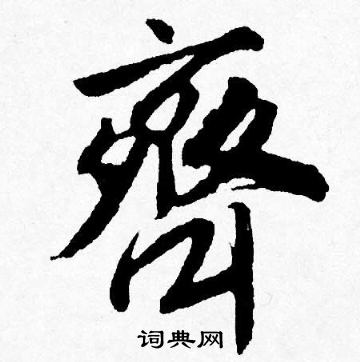 齊
词典网